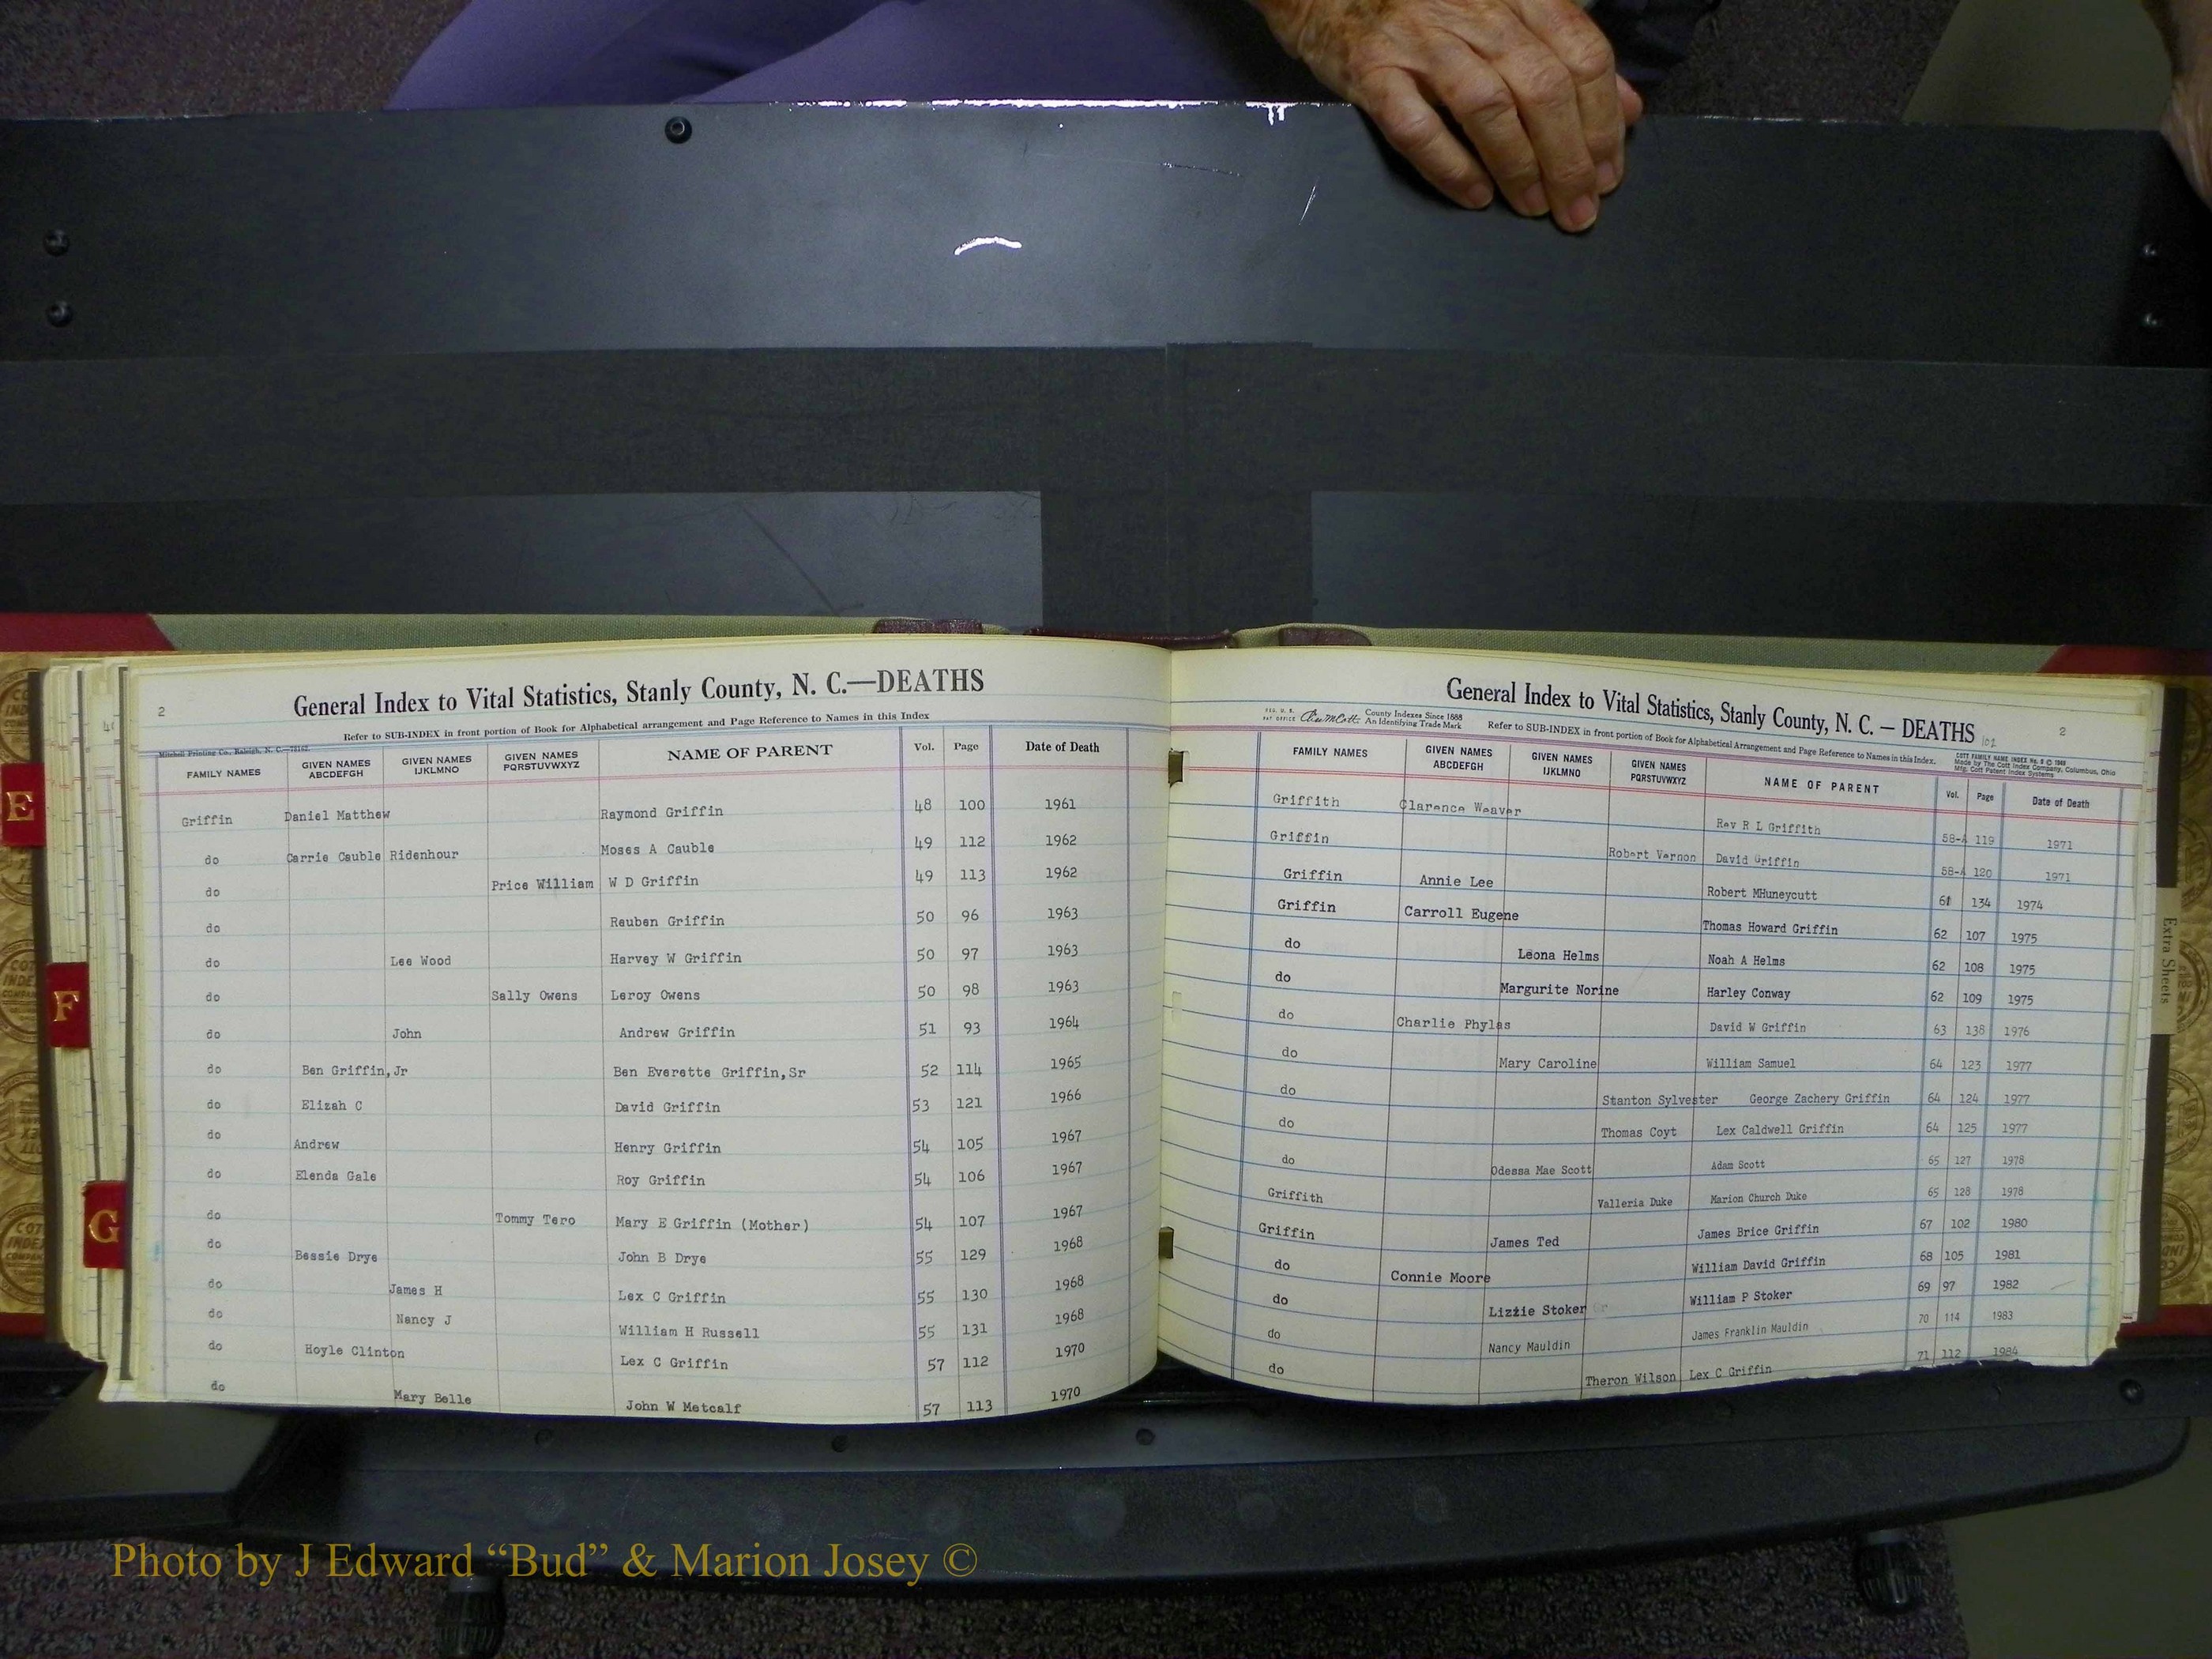 2
General Index to Vital Statistics, Stanly County, N. C.—DEATHS
Refer to SUB-INDEX in front portion of Book for Alphabetical arrangement and Page Reference to Names in this Index
Mitchell Printing Co., Raleigh, N. C.
FAMILY NAMES GIVEN NAMES ABCDEFGH GIVEN NAMES IJKLMNO GIVEN NAMES PQRSTUVWXYZ NAME OF PARENT Vol. Page Date of Death
Griffin Daniel Matthew Raymond Griffin 48 100 1961
do Carrie Cauble Ridenhour Moses A Cauble 49 112 1962
do Price William W D Griffin 49 113 1962
do Reuben Griffin 50 96 1963
do Lee Wood Harvey W Griffin 50 97 1963
do Sally Owens Leroy Owens 50 98 1963
do John Andrew Griffin 51 93 1964
do Ben Griffin,Jr Ben Everette Griffin,Sr 52 114 1965
do Elizah C David Griffin 53 121 1966
do Andrew Henry Griffin 54 105 1967
do Elenda Gale Roy Griffin 54 106 1967
do Tommy Tero Mary E Griffin (Mother) 54 107 1967
do Bessie Drye John B Drye 55 129 1968
do James H Lex C Griffin 55 130 1968
do Nancy J William H Russell 55 131 1968
do Hoyle Clinton Lex C Griffin 57 112 1970
do Mary Belle John W Metcalf 57 113 1970
General Index to Vital Statistics, Stanly County, N. C. — DEATHS 102 2
County Indexes Since 1888
An Identifying Trade Mark
Refer to SUB-INDEX in front portion of Book for Alphabetical Arrangement and Page Reference to Names in this Index.
Made by The Cott Index Company, Columbus, Ohio
Mfg. Cott Patent Index Systems
FAMILY NAMES GIVEN NAMES ABCDEFGH GIVEN NAMES IJKLMNO GIVEN NAMES PQRSTUVWXYZ NAME OF PARENT Vol. Page Date of Death
Griffith Clarence Weaver Rev R L Griffith 58-A 119 1971
Griffin Robert Vernon David Griffin 58-A 120 1971
Griffin Annie Lee Robert MHuneycutt 61 134 1974
Griffin Carroll Eugene Thomas Howard Griffin 62 107 1975
do Leona Helms Noah A Helms 62 108 1975
do Margurite Norine Harley Conway 62 109 1975
do Charlie Phylas David W Griffin 63 138 1976
do Mary Caroline William Samuel 64 123 1977
do Stanton Sylvester George Zachery Griffin 64 124 1977
do Thomas Coyt Lex Caldwell Griffin 64 125 1977
do Odessa Mae Scott Adam Scott 65 127 1978
Griffith Valleria Duke Marion Church Duke 65 128 1978
Griffin James Ted James Brice Griffin 67 102 1980
do Connie Moore William David Griffin 68 105 1981
do Lizzie Stoker William P Stoker 69 97 1982
do Nancy Mauldin James Franklin Mauldin 70 114 1983
do Theron Wilson Lex C Griffin 71 112 1984
E
F
G
Extra Sheets
Photo by J Edward “Bud” & Marion Josey ©